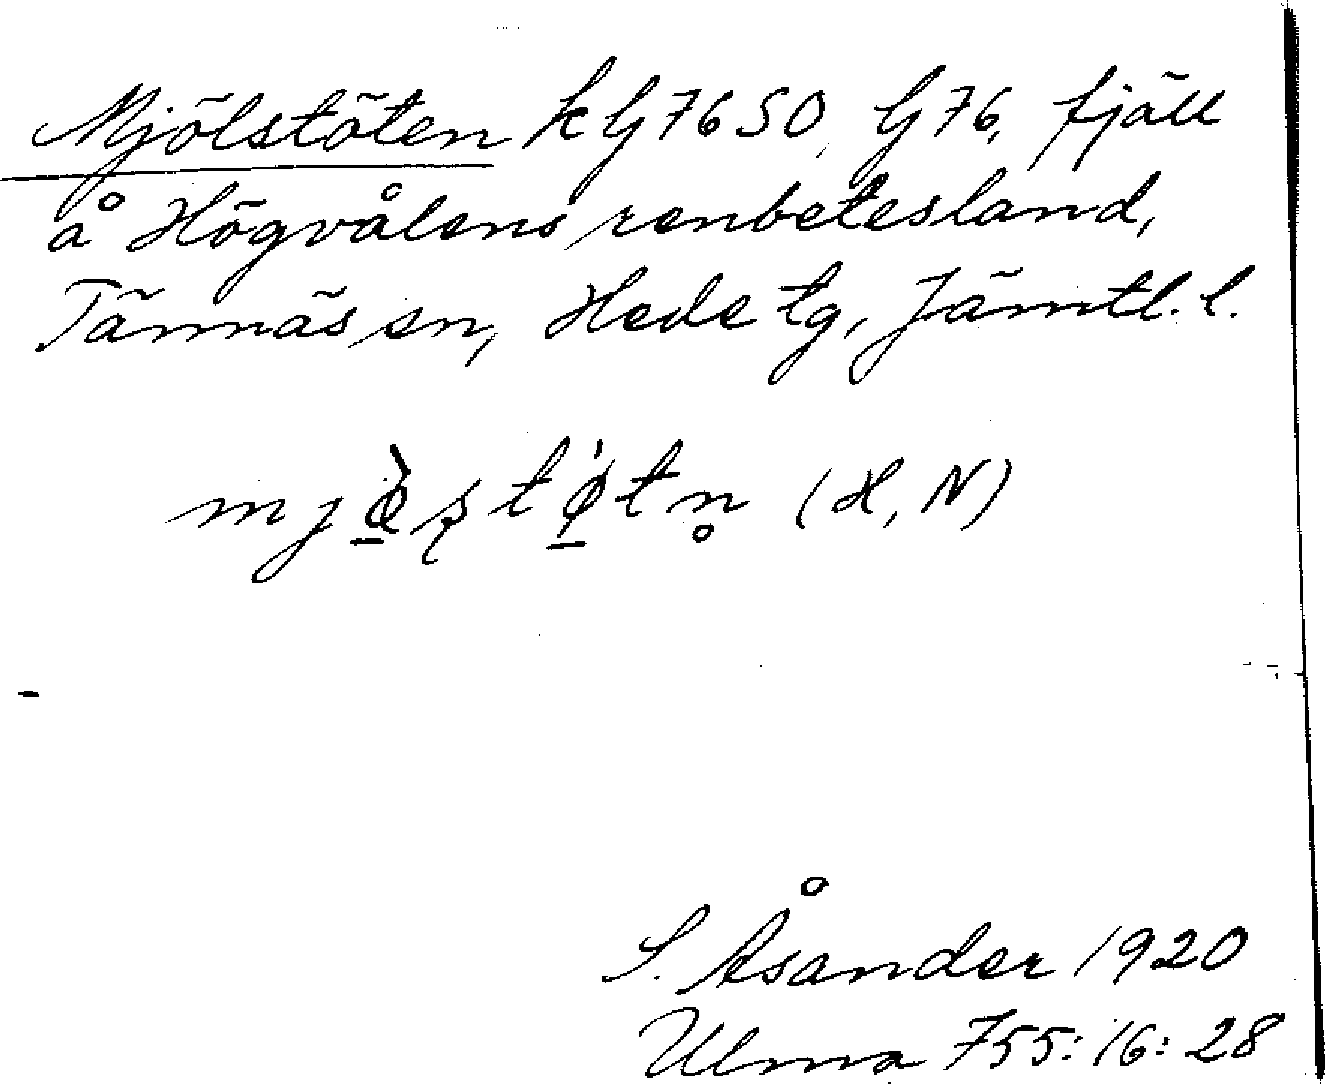 Mjölstöten k G 76 SO, G 76, fjäll
å Högvålens renbetesland,
Tännäs sn, Hede tg, Jämtl. l.
(H, N)
S. Åsander 1920
Ulma 755:16:28